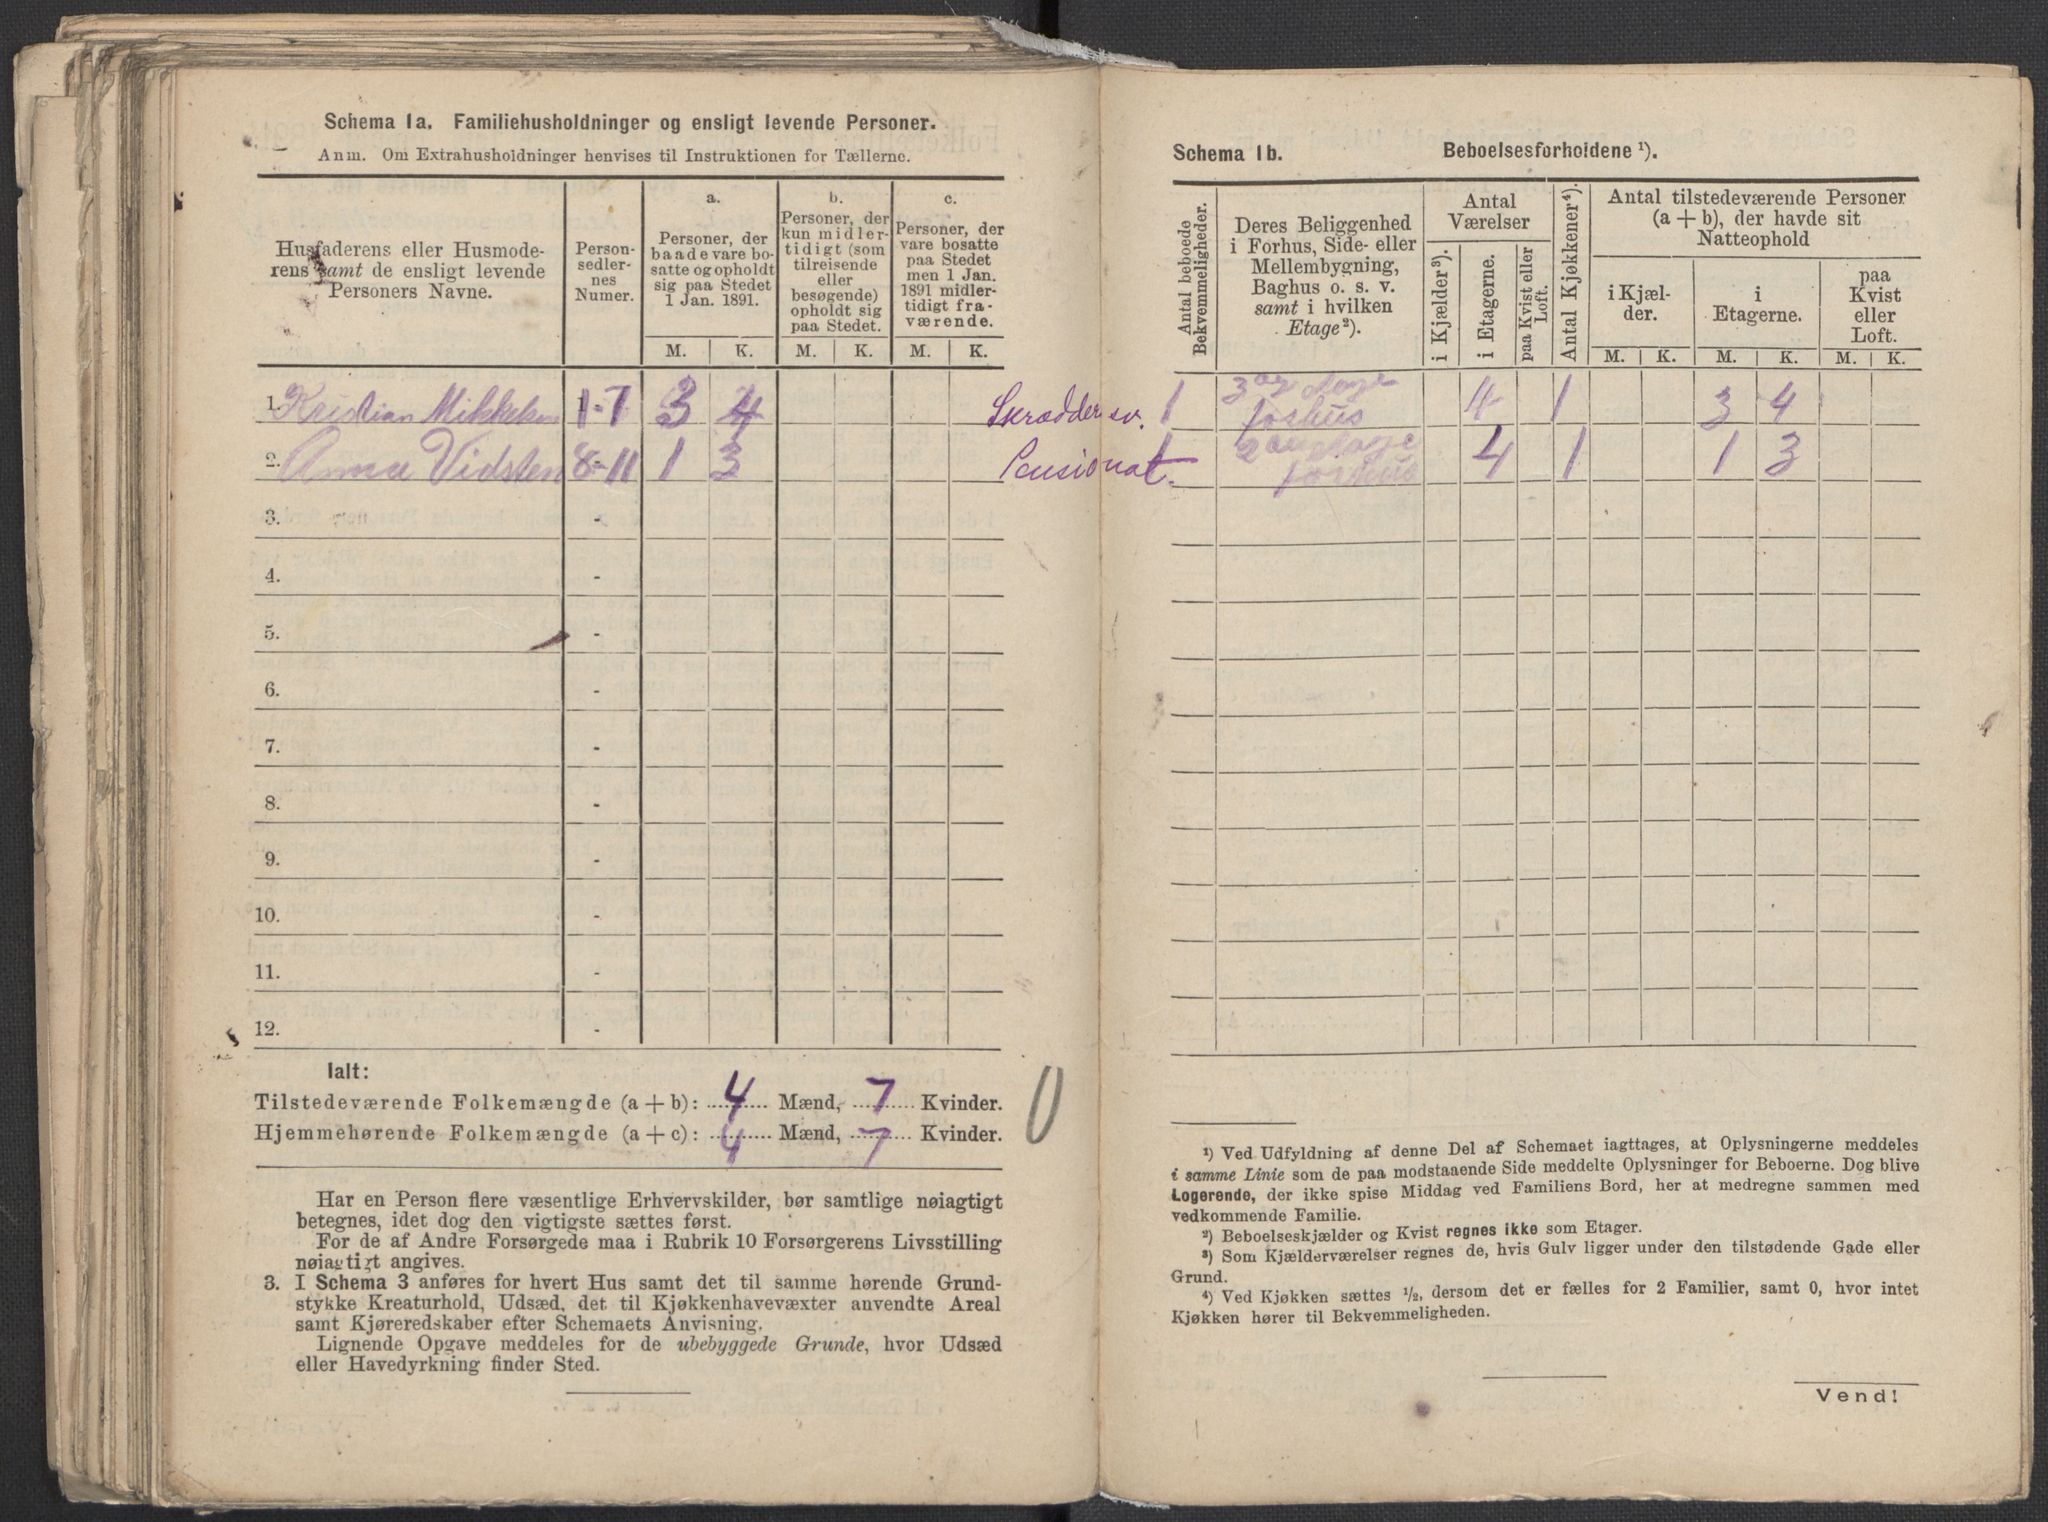 Schema 1a. Familiehusholdninger og ensligt levende Personer.
Anm. Om Extrahusholdninger henvises til Instruktionen for Tællerne.
Husfaderens eller Husmoderens samt de ensligt levende Personers Navne.
Personsedlernes Numer.
a.
Personer, der baade vare bosatte og opholdt sig paa Stedet 1 Jan. 1891.
b.
Personer, der kun midlertidigt (som tilreisende eller besøgende) opholdt sig paa Stedet.
c.
Personer, der vare bosatte paa Stedet men 1 Jan. 1891 midlertidigt fraværende.
M. K. M. K. M. K.
1. Kristian Mikkelsen 1-7 3 4
2. Anna Vidsten 8-11 1 3
3. -
4. -
5. -
6. -
7. -
8. -
9. -
10. -
11. -
12. -
Ialt:
Tilstedeværende Folkemængde (a + b): 4 Mænd, 7 Kvinder.
Hjemmehørende Folkemængde (a + c): 4 Mænd, 7 Kvinder.
0
Har en Person flere væsentlige Erhvervskilder, bør samtlige nøiagtigt
betegnes, idet dog den vigtigste sættes først.
For de af Andre Forsørgede maa i Rubrik 10 Forsørgerens Livsstilling
nøiagtigt angives.
3. I Schema 3 anføres for hvert Hus samt det til samme hørende Grund-
stykke Kreaturhold, Udsæd, det til Kjøkkenhavevæxter anvendte Areal
samt Kjøreredskaber efter Schemaets Anvisning.
Lignende Opgave meddeles for de ubebyggede Grunde, hvor Udsæd
eller Havedyrkning finder Sted.
Schema 1b. Beboelsesforholdene ¹).
Antal beboede Bekvemmeligheder.
Deres Beliggenhed i Forhus, Side- eller Mellembygning, Baghus o. s. v. samt i hvilken Etage ²).
Antal Værelser
i Kjælder ³).
i Etagerne.
paa Kvist eller Loft.
Antal Kjøkkener ⁴).
Antal tilstedeværende Personer (a + b), der havde sit Natteophold
i Kjælder.
i Etagerne.
paa Kvist eller Loft.
M. K. M. K. M. K.
Skræddersv. 1 3 etage forhus 4 1 3 4
Pensionat. 1 2 etage forhus 4 1 1 3
¹) Ved Udfyldning af denne Del af Schemaet iagttages, at Oplysningerne meddeles
i samme Linie som de paa modstaaende Side meddelte Oplysninger for Beboerne. Dog blive
Logerende, der ikke spise Middag ved Familiens Bord, her at medregne sammen med
vedkommende Familie.
²) Beboelseskjælder og Kvist regnes ikke som Etager.
³) Som Kjælderværelser regnes de, hvis Gulv ligger under den tilstødende Gade eller
Grund.
⁴) Ved Kjøkken sættes ½, dersom det er fælles for 2 Familier, samt 0, hvor intet
Kjøkken hører til Bekvemmeligheden.
Vend!